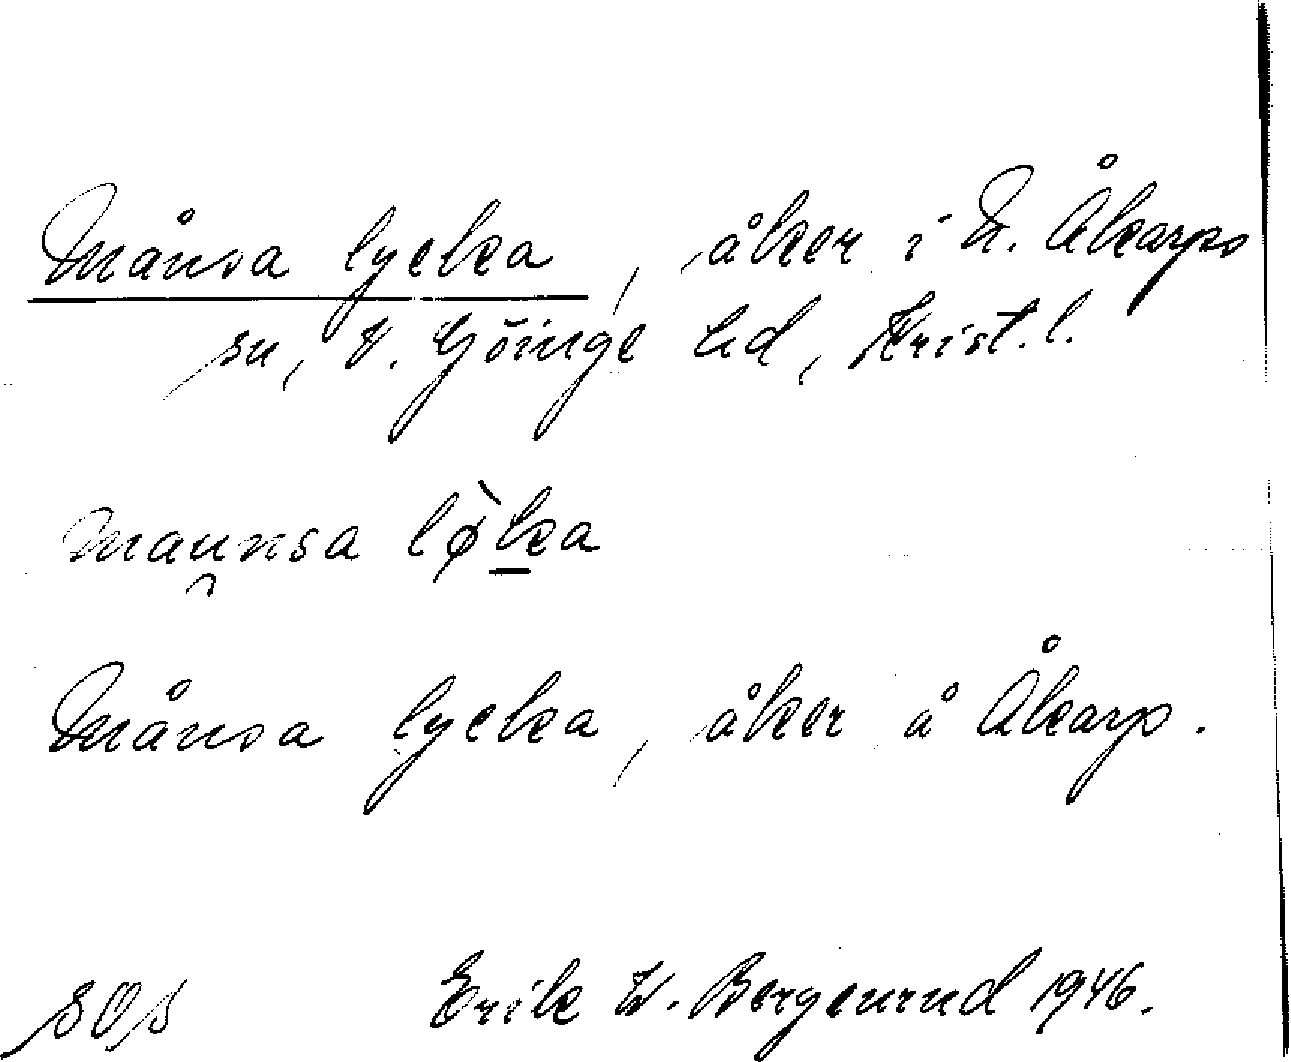 Månsa lycka, åker i N. Åkarps
sn, V. Göinge hd, Krist. l.
mau̯nsa lø̀ka
Månsa lycka, åker å Åkarp.
sOs Erik W. Bergenrud 1946.